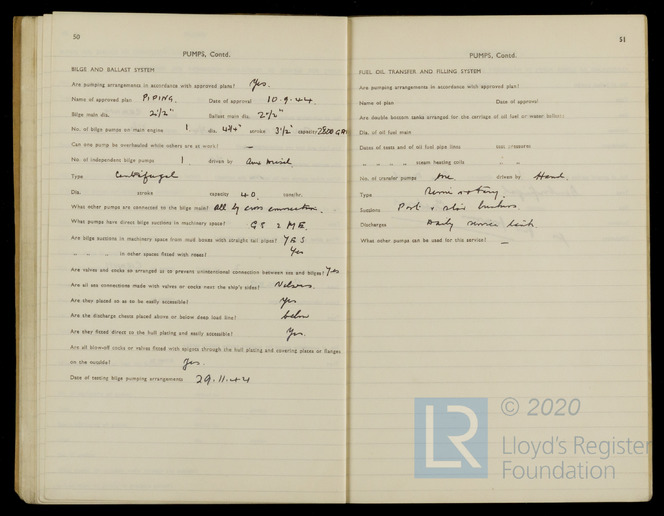 50
PUMPS, Contd.
BILGE AND BALLAST SYSTEM
Are pumping arrangements in accordance with approved plans? Yes.
Name of approved plan PIPING. Date of approval 10.9.44.
Bilge main dia. 2½" Ballast main dia. 2½"
No. of bilge pumps on main engine 1. dia. 4¾" stroke 3½" capacity 2800
Can one pump be overhauled while others are at work? —
No. of independent bilge pumps 1 driven by
Type Centrifugal
Dia. stroke capacity 40. tons/hr.
What other pumps are connected to the bilge main? All by cross connection.
What pumps have direct bilge suctions in machinery space? G S 2 M E.
Are bilge suctions in machinery space from mud boxes with straight tail pipes? YES
„ „ „ in other spaces fitted with roses? Yes
Are valves and cocks so arranged as to prevent unintentional connection between sea and bilges? Yes
Are all sea connections made with valves or cocks next the ship's sides? Valves.
Are they placed so as to be easily accessible? Yes
Are the discharge chests placed above or below deep load line? below
Are they fitted direct to the hull plating and easily accessible? Yes.
Are all blow-off cocks or valves fitted with spigots through the hull plating and covering plates or flanges
on the outside? Yes.
Date of testing bilge pumping arrangements 29.11.44
51
PUMPS, Contd.
FUEL OIL TRANSFER AND FILLING SYSTEM
Are pumping arrangements in accordance with approved plan?
Name of plan Date of approval
Are double bottom tanks arranged for the carriage of oil fuel or water ballast?
Dia. of oil fuel main
Dates of tests and of oil fuel pipe lines test pressures
„ „ „ „ steam heating coils „ „
No. of transfer pumps One driven by Hand.
Type Semi rotary.
Suctions Port & stbd bunkers.
Discharges Daily service tank.
What other pumps can be used for this service? —
LR
© 2020
Lloyd's Register
Foundation